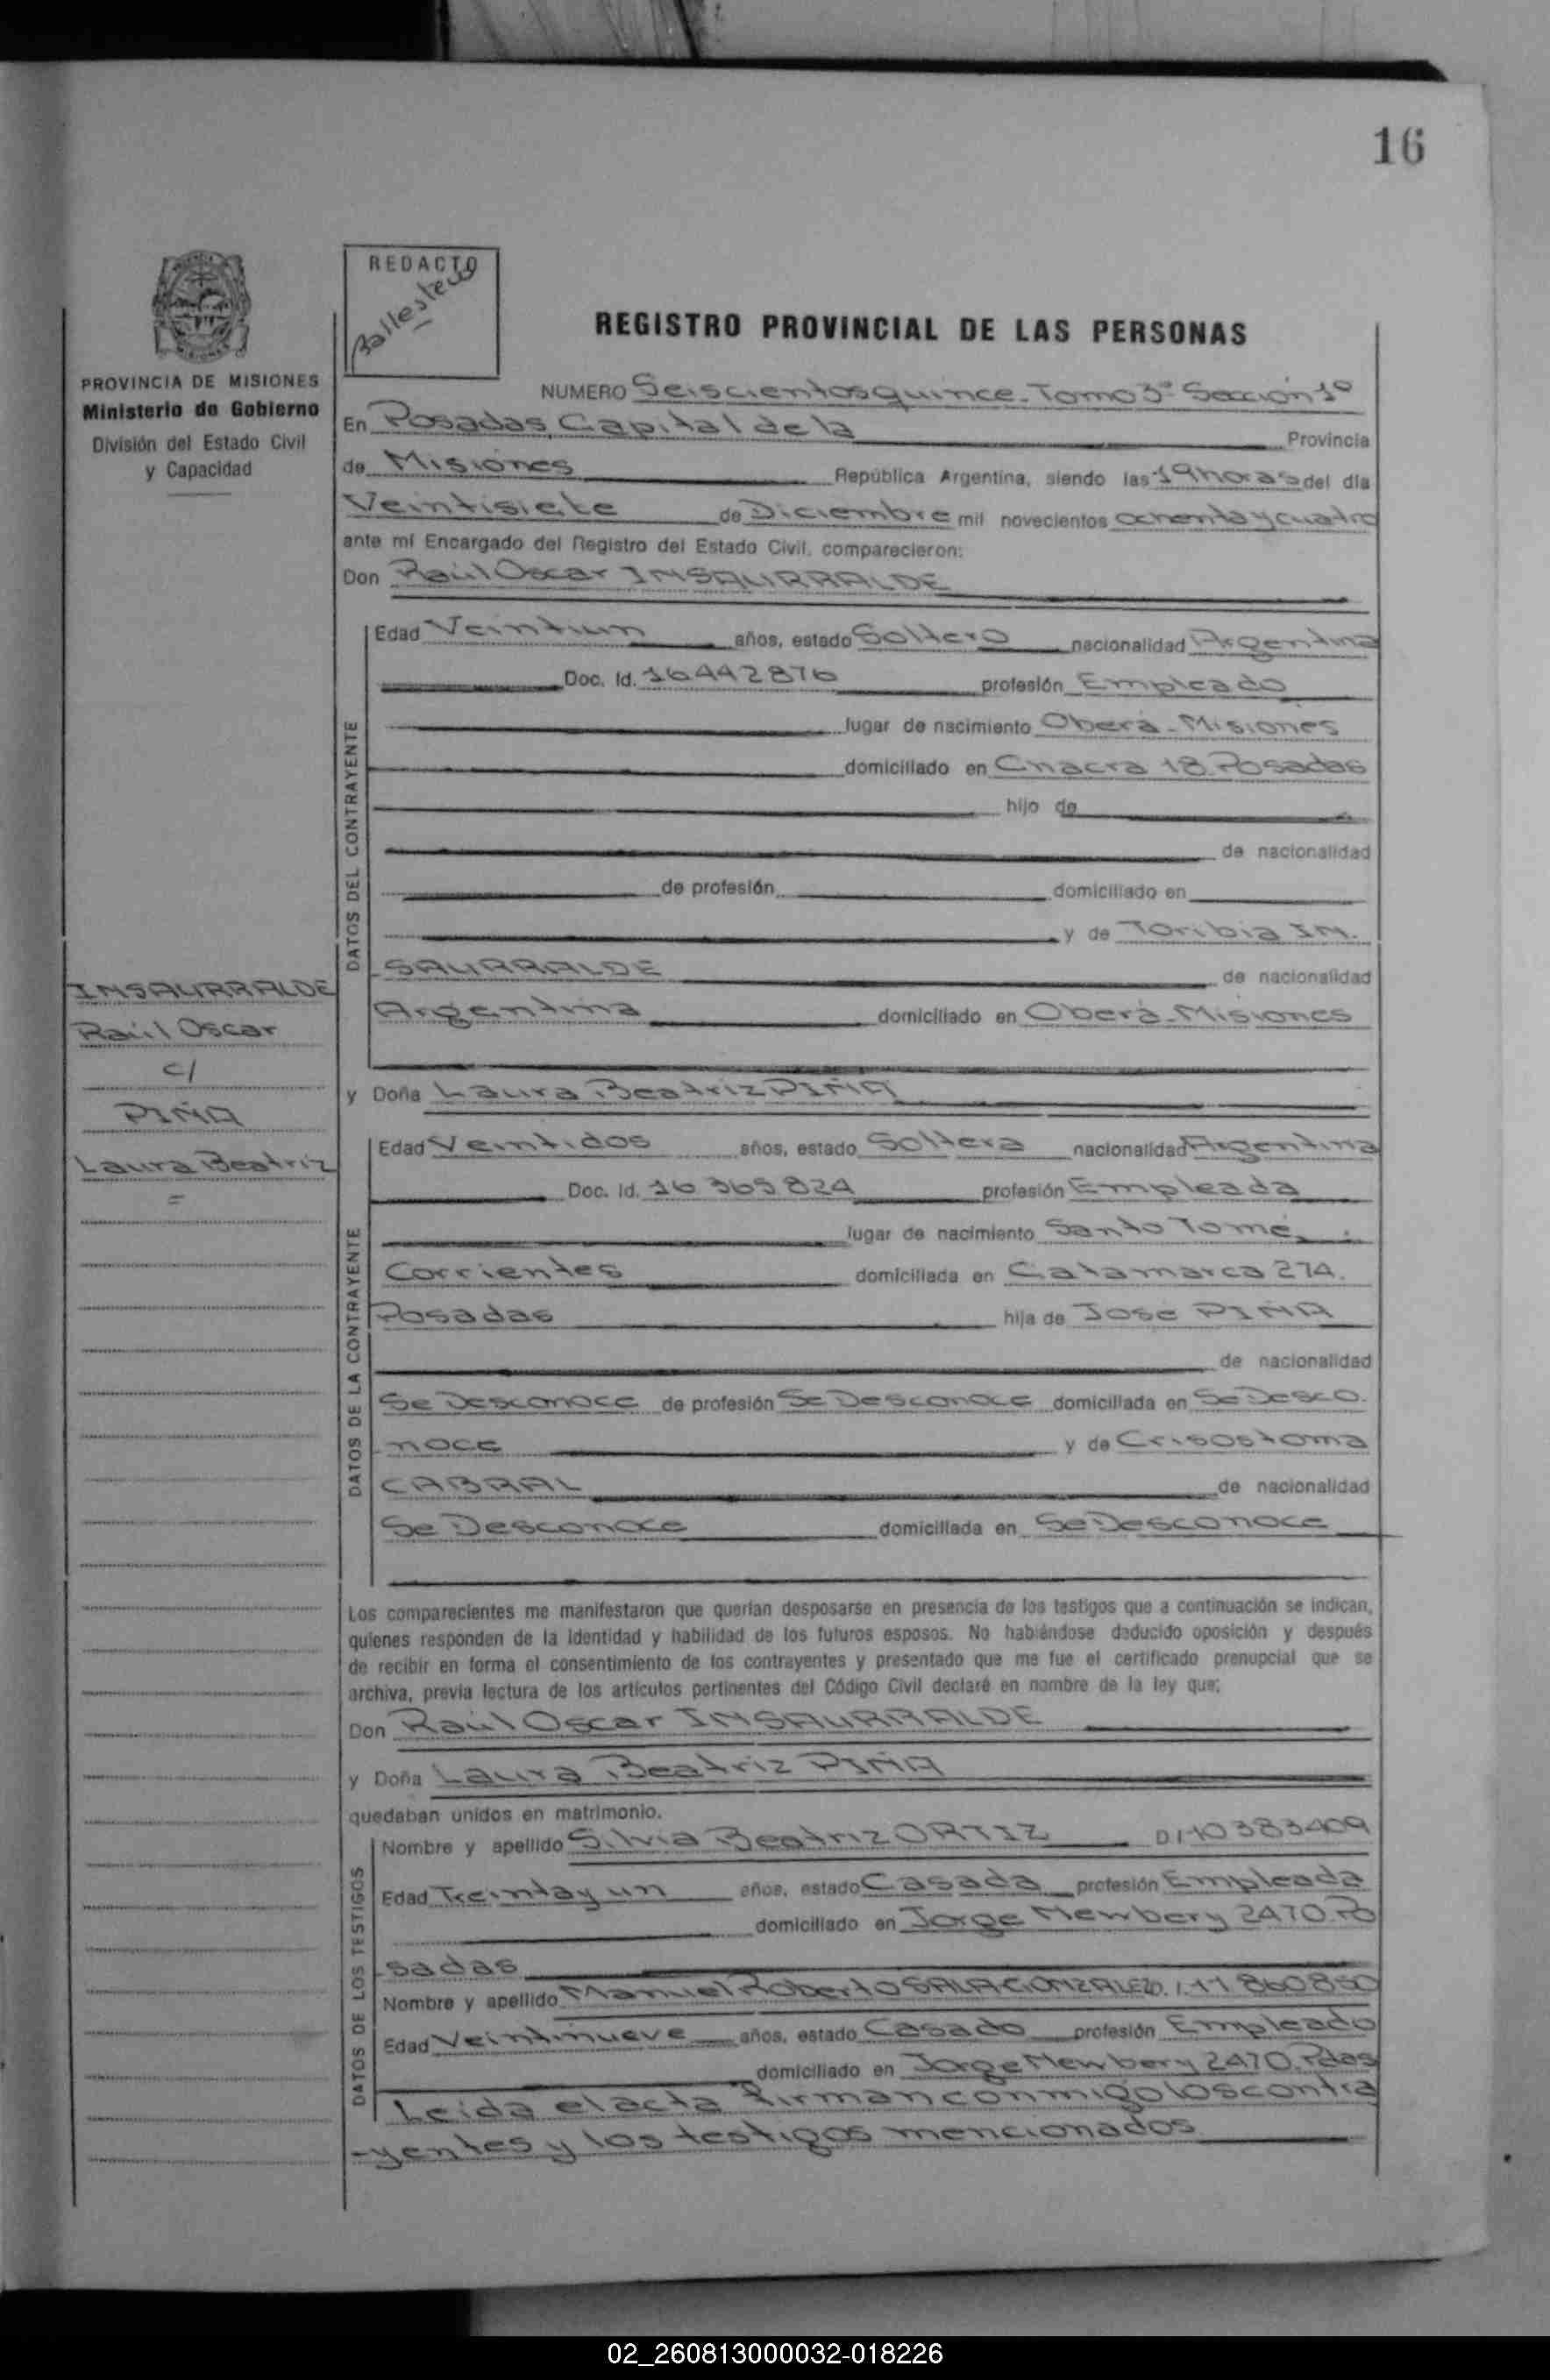 16
REDACTO
Ballesteros
REGISTRO PROVINCIAL DE LAS PERSONAS
PROVINCIA DE MISIONES
Ministerio de Gobierno
División del Estado Civil
y Capacidad
NUMERO Seiscientos quince. Tomo 3º Sección 1º
En Posadas, Capital de la Provincia
de Misiones República Argentina, siendo las 19 horas del día
Veintisiete de Diciembre mil novecientos ochenta y cuatro
ante mí Encargado del Registro del Estado Civil, comparecieron:
Don Raúl Oscar INSAURRALDE
DATOS DEL CONTRAYENTE
Edad Veintiun años, estado Soltero nacionalidad Argentina
Doc. Id. 16442876 profesión Empleado
lugar de nacimiento Oberá-Misiones
domiciliado en Chacra 18 Posadas
hijo de
de nacionalidad
de profesión domiciliado en
y de Toribia IN.
SAURRALDE de nacionalidad
Argentina domiciliado en Oberá-Misiones
INSAURRALDE
Raúl Oscar
c/
PIÑA
Laura Beatriz
=
y Doña Laura Beatriz PIÑA
DATOS DE LA CONTRAYENTE
Edad Veintidos años, estado Soltera nacionalidad Argentina
Doc. Id. 16365824 profesión Empleada
lugar de nacimiento Santo Tomé.
Corrientes domiciliada en Catamarca 274.
Posadas hija de José PIÑA
de nacionalidad
Se Desconoce de profesión Se Desconoce domiciliada en Se Desco.
noce y de Crisostoma
CABRAL de nacionalidad
Se Desconoce domiciliada en Se Desconoce
Los comparecientes me manifestaron que querían desposarse en presencia de los testigos que a continuación se indican,
quienes responden de la identidad y habilidad de los futuros esposos. No habiéndose deducido oposición y después
de recibir en forma el consentimiento de los contrayentes y presentado que me fue el certificado prenupcial que se
archiva, previa lectura de los artículos pertinentes del Código Civil declaré en nombre de la ley que;
Don Raúl Oscar INSAURRALDE
y Doña Laura Beatriz PIÑA
quedaban unidos en matrimonio.
DATOS DE LOS TESTIGOS
Nombre y apellido Silvia Beatriz ORTIZ DI 10383409
Edad Treinta y un años, estado Casada profesión Empleada
domiciliado en Jorge Newbery 2470. Po
sadas
Nombre y apellido Manuel Roberto SALA GONZALEZ D.I. 11 860850
Edad Veintinueve años, estado Casado profesión Empleado
domiciliado en Jorge Newbery 2470. Pdas
Leida el acta firman conmigo los contra
-yentes y los testigos mencionados
02_260813000032-018226